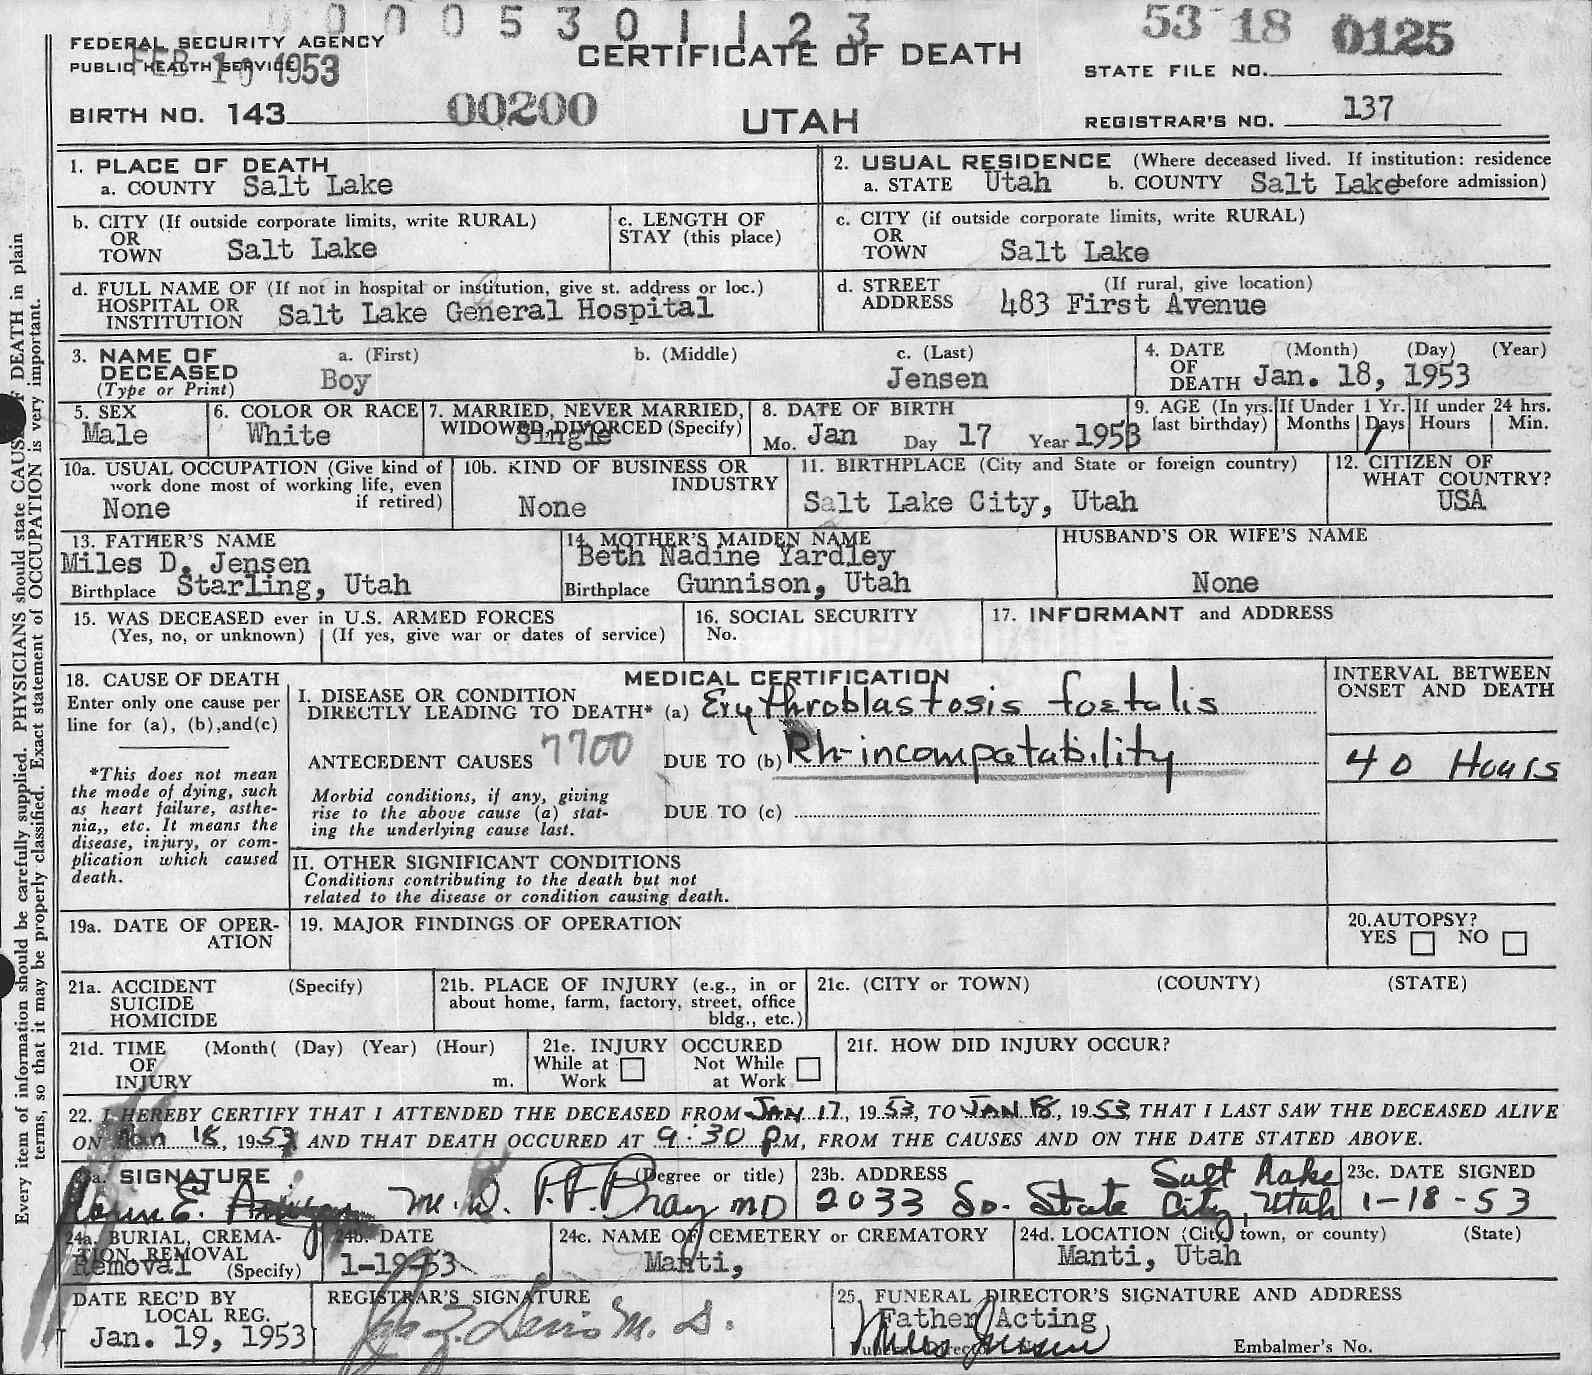 0 0 0 0 5 3 0 1 1 2 3
53 18 0125
FEDERAL SECURITY AGENCY
PUBLIC HEALTH SERVICE
FEB 10 1953
CERTIFICATE OF DEATH
STATE FILE NO.
BIRTH NO. 143 00200
UTAH
REGISTRAR'S NO. 137
1. PLACE OF DEATH
a. COUNTY Salt Lake
2. USUAL RESIDENCE (Where deceased lived. If institution: residence
a. STATE Utah b. COUNTY Salt Lake before admission)
b. CITY (If outside corporate limits, write RURAL)
OR
TOWN Salt Lake
c. LENGTH OF
STAY (this place)
c. CITY (if outside corporate limits, write RURAL)
OR
TOWN Salt Lake
d. FULL NAME OF (If not in hospital or institution, give st. address or loc.)
HOSPITAL OR
INSTITUTION Salt Lake General Hospital
d. STREET (If rural, give location)
ADDRESS 483 First Avenue
3. NAME OF a. (First) b. (Middle) c. (Last)
DECEASED
(Type or Print) Boy Jensen
4. DATE (Month) (Day) (Year)
OF
DEATH Jan. 18, 1953
5. SEX
Male
6. COLOR OR RACE
White
7. MARRIED, NEVER MARRIED,
WIDOWED, DIVORCED (Specify)
Single
8. DATE OF BIRTH
Mo. Jan Day 17 Year 1953
9. AGE (In yrs.
last birthday)
If Under 1 Yr.
Months Days
1
If under 24 hrs.
Hours Min.
10a. USUAL OCCUPATION (Give kind of
work done most of working life, even
if retired)
None
10b. KIND OF BUSINESS OR
INDUSTRY
None
11. BIRTHPLACE (City and State or foreign country)
Salt Lake City, Utah
12. CITIZEN OF
WHAT COUNTRY?
USA
13. FATHER'S NAME
Miles D. Jensen
Birthplace Starling, Utah
14. MOTHER'S MAIDEN NAME
Beth Nadine Yardley
Birthplace Gunnison, Utah
HUSBAND'S OR WIFE'S NAME
None
15. WAS DECEASED ever in U.S. ARMED FORCES
(Yes, no, or unknown) (If yes, give war or dates of service)
16. SOCIAL SECURITY
No.
17. INFORMANT and ADDRESS
18. CAUSE OF DEATH
Enter only one cause per
line for (a), (b),and(c)
*This does not mean
the mode of dying, such
as heart failure, asthe-
nia,, etc. It means the
disease, injury, or com-
plication which caused
death.
MEDICAL CERTIFICATION
I. DISEASE OR CONDITION
DIRECTLY LEADING TO DEATH* (a) Erythroblastosis foetalis
ANTECEDENT CAUSES 7700 DUE TO (b) Rh-incompatability
Morbid conditions, if any, giving
rise to the above cause (a) stat-
ing the underlying cause last.
DUE TO (c)
II. OTHER SIGNIFICANT CONDITIONS
Conditions contributing to the death but not
related to the disease or condition causing death.
INTERVAL BETWEEN
ONSET AND DEATH
40 Hours
19a. DATE OF OPER-
ATION
19. MAJOR FINDINGS OF OPERATION
20.AUTOPSY?
YES NO
21a. ACCIDENT (Specify)
SUICIDE
HOMICIDE
21b. PLACE OF INJURY (e.g., in or
about home, farm, factory, street, office
bldg., etc.)
21c. (CITY or TOWN) (COUNTY) (STATE)
21d. TIME (Month( (Day) (Year) (Hour)
OF
INJURY m.
21e. INJURY OCCURED
While at Not While
Work at Work
21f. HOW DID INJURY OCCUR?
22. I HEREBY CERTIFY THAT I ATTENDED THE DECEASED FROM JAN 17, 1953, TO JAN 18, 1953, THAT I LAST SAW THE DECEASED ALIVE
ON Jan 18, 1953 AND THAT DEATH OCCURED AT 9:30 PM, FROM THE CAUSES AND ON THE DATE STATED ABOVE.
SIGNATURE (Degree or title)
E. M.D. P.F. Bray MD
23b. ADDRESS
2033 So. State Salt Lake City, Utah
23c. DATE SIGNED
1-18-53
24a. BURIAL, CREMA-
TION, REMOVAL
Removal (Specify)
24b. DATE
1-19-53
24c. NAME OF CEMETERY or CREMATORY
Manti,
24d. LOCATION (City, town, or county) (State)
Manti, Utah
DATE REC'D BY
LOCAL REG.
Jan. 19, 1953
REGISTRAR'S SIGNATURE
M. D.
25. FUNERAL DIRECTOR'S SIGNATURE AND ADDRESS
Father Acting
Miles Jensen
Embalmer's No.
Every item of information should be carefully supplied. PHYSICIANS should state CAUSE OF DEATH in plain
terms, so that it may be properly classified. Exact statement of OCCUPATION is very important.